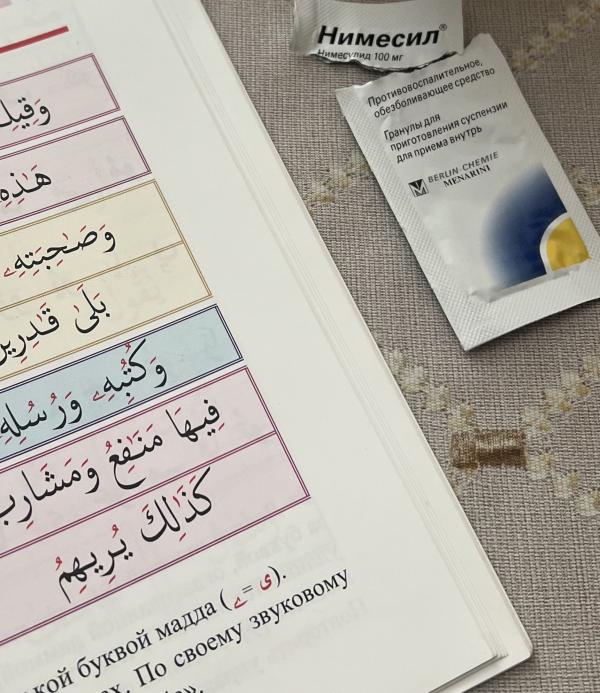 وَقِيلِ
هَـٰذِهِ
وَصَـٰحِبَتِهِۦ
بَلَىٰ قَـٰدِرِينَ
وَكُتُبِهِۦ وَرُسُلِهِۦ
فِيهَا مَنَـٰفِعُ وَمَشَارِبُ
كَذَٰلِكَ يُرِيهِمُ
кой буквой мадда (ۦ = ى).
ах. По своему звуковому
Нимесил®
Нимесулид 100 мг
Противовоспалительное,
обезболивающее средство
Гранулы для
приготовления суспензии
для приема внутрь
BERLIN-CHEMIE
MENARINI